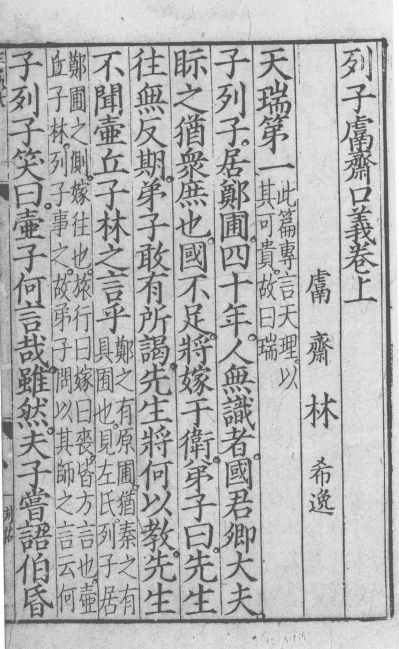 列子鬳齋口義卷上
鬳齋林希逸
天瑞第一此篇專言天理以
其可貴故曰瑞
子列子居鄭圃四十年人無識者國君卿大夫
眎之猶衆庶也國不足將嫁于衛弟子曰先生
往無反期弟子敢有所謁先生將何以教先生
不聞壷丘子林之言乎鄭之有原圃猶秦之有
具圃也見左氏列子居
鄭圃之側嫁往也旅行曰嫁曰喪皆方言也壷
丘子林列子事之故弟子問以其師之言云何
子列子笑曰壷子何言哉雖然夫子嘗語伯昏